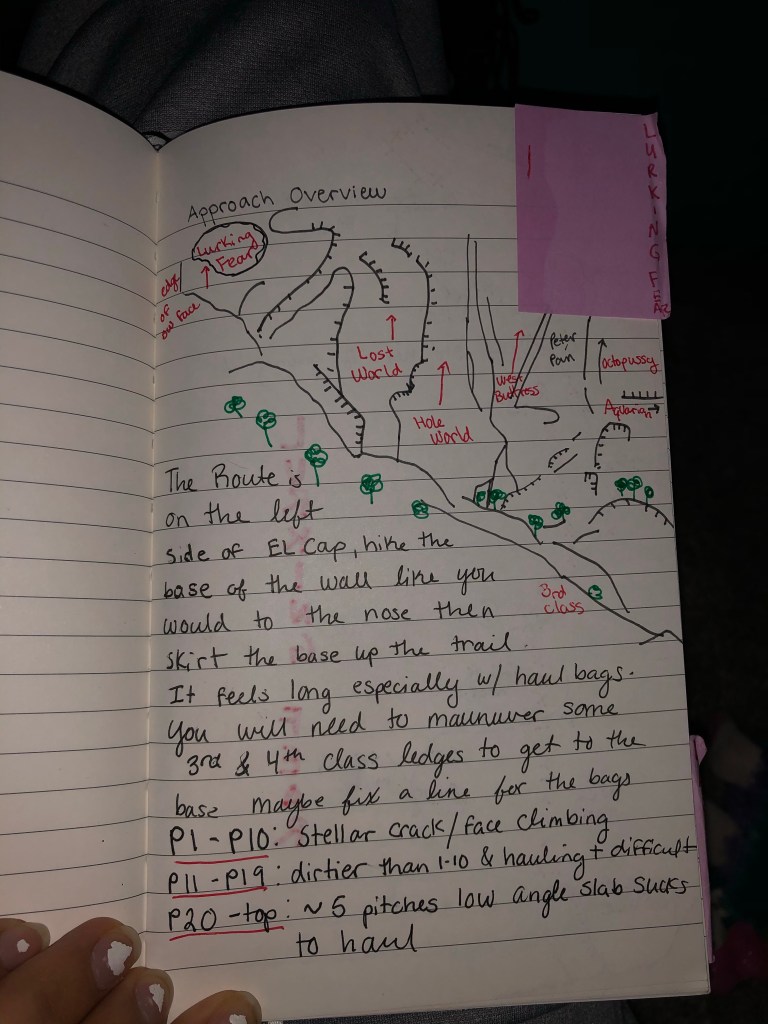 LURKING FEAR
Approach Overview
Lurking
Fear
edge
of
ow face
Lost
World
Hole
World
West
Buttress
Peter
Pan
Octopussy
Aquarian
3rd
class
The Route is
on the left
side of EL Cap, hike the
base of the wall like you
would to the nose then
skirt the base up the trail.
It feels long especially w/ haul bags.
You will need to maunuver some
3rd & 4th class ledges to get to the
base maybe fix a line for the bags
P1-P10: Stellar crack/face climbing
P11-P19: dirtier than 1-10 & hauling + difficult
P20-top: ~5 pitches low angle slab sucks
to haul